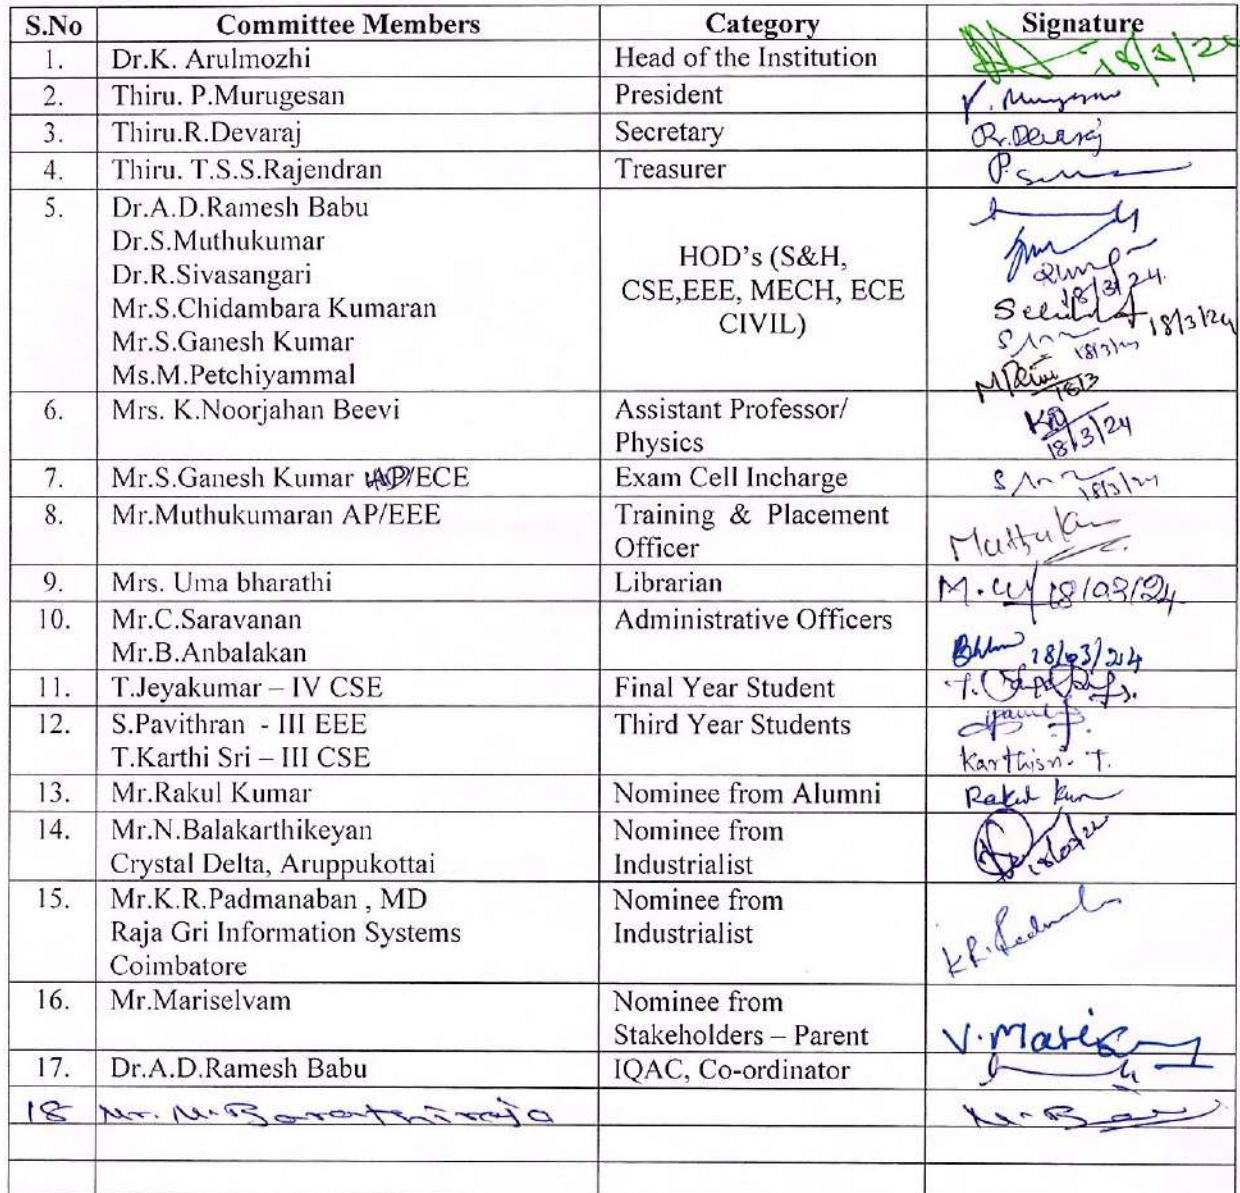 S.No Committee Members Category Signature
1. Dr.K. Arulmozhi Head of the Institution 18/3/24
2. Thiru. P.Murugesan President P. Murugesan
3. Thiru.R.Devaraj Secretary R.Devaraj
4. Thiru. T.S.S.Rajendran Treasurer
5. Dr.A.D.Ramesh Babu
Dr.S.Muthukumar
Dr.R.Sivasangari
Mr.S.Chidambara Kumaran
Mr.S.Ganesh Kumar
Ms.M.Petchiyammal
HOD's (S&H,
CSE,EEE, MECH, ECE
CIVIL)
18/3/24.
18/3/24
18/3/24
18/3
6. Mrs. K.Noorjahan Beevi Assistant Professor/
Physics
18/3/24
7. Mr.S.Ganesh Kumar AP/ECE Exam Cell Incharge 18/3/24
8. Mr.Muthukumaran AP/EEE Training & Placement
Officer
9. Mrs. Uma bharathi Librarian 18/03/24
10. Mr.C.Saravanan Administrative Officers
Mr.B.Anbalakan 18/03/24
11. T.Jeyakumar – IV CSE Final Year Student
12. S.Pavithran - III EEE Third Year Students
T.Karthi Sri – III CSE Karthisri. T.
13. Mr.Rakul Kumar Nominee from Alumni Rakul Kum
14. Mr.N.Balakarthikeyan Nominee from
Crystal Delta, Aruppukottai Industrialist
15. Mr.K.R.Padmanaban , MD Nominee from
Raja Gri Information Systems Industrialist
Coimbatore
16. Mr.Mariselvam Nominee from
Stakeholders – Parent
17. Dr.A.D.Ramesh Babu IQAC, Co-ordinator
18 Mr. M. Barathiraja